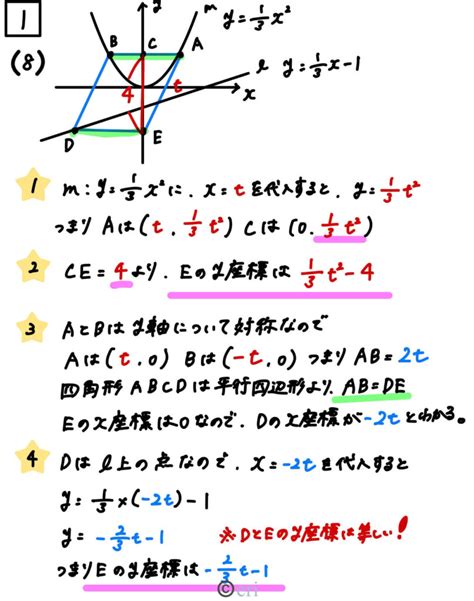 1
(8)
y
m
y=1/3x²
B
C
A
l
y=1/3x-1
4
t
x
D
E
1
m:y=1/3x²に、x=tを代入すると、y=1/3t²
つまりAは(t, 1/3t²) Cは(0, 1/3t²)
2
CE=4より、Eのy座標は 1/3t²-4
3
AとBはy軸について対称なので
Aは(t, 0) Bは(-t, 0) つまりAB=2t
四角形ABCDは平行四辺形より、AB=DE
Eのx座標は0なので、Dのx座標が-2tとわかる。
4
Dはl上の点なので、x=-2tを代入すると
y=1/3×(-2t)-1
y=-2/3t-1
※DとEのy座標は等しい!
つまりEのy座標は-2/3t-1